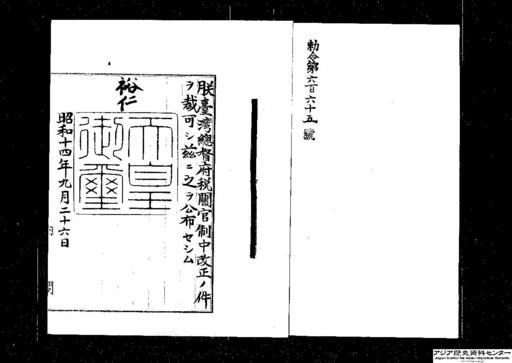 勅令第六百六十五號
朕臺灣總督府税關官制中改正ノ件
ヲ裁可シ茲ニ之ヲ公布セシム
裕仁
天皇
御璽
昭和十四年九月二十六日
内 閣
アジア歴史資料センター
Japan Center for Asian Historical Records